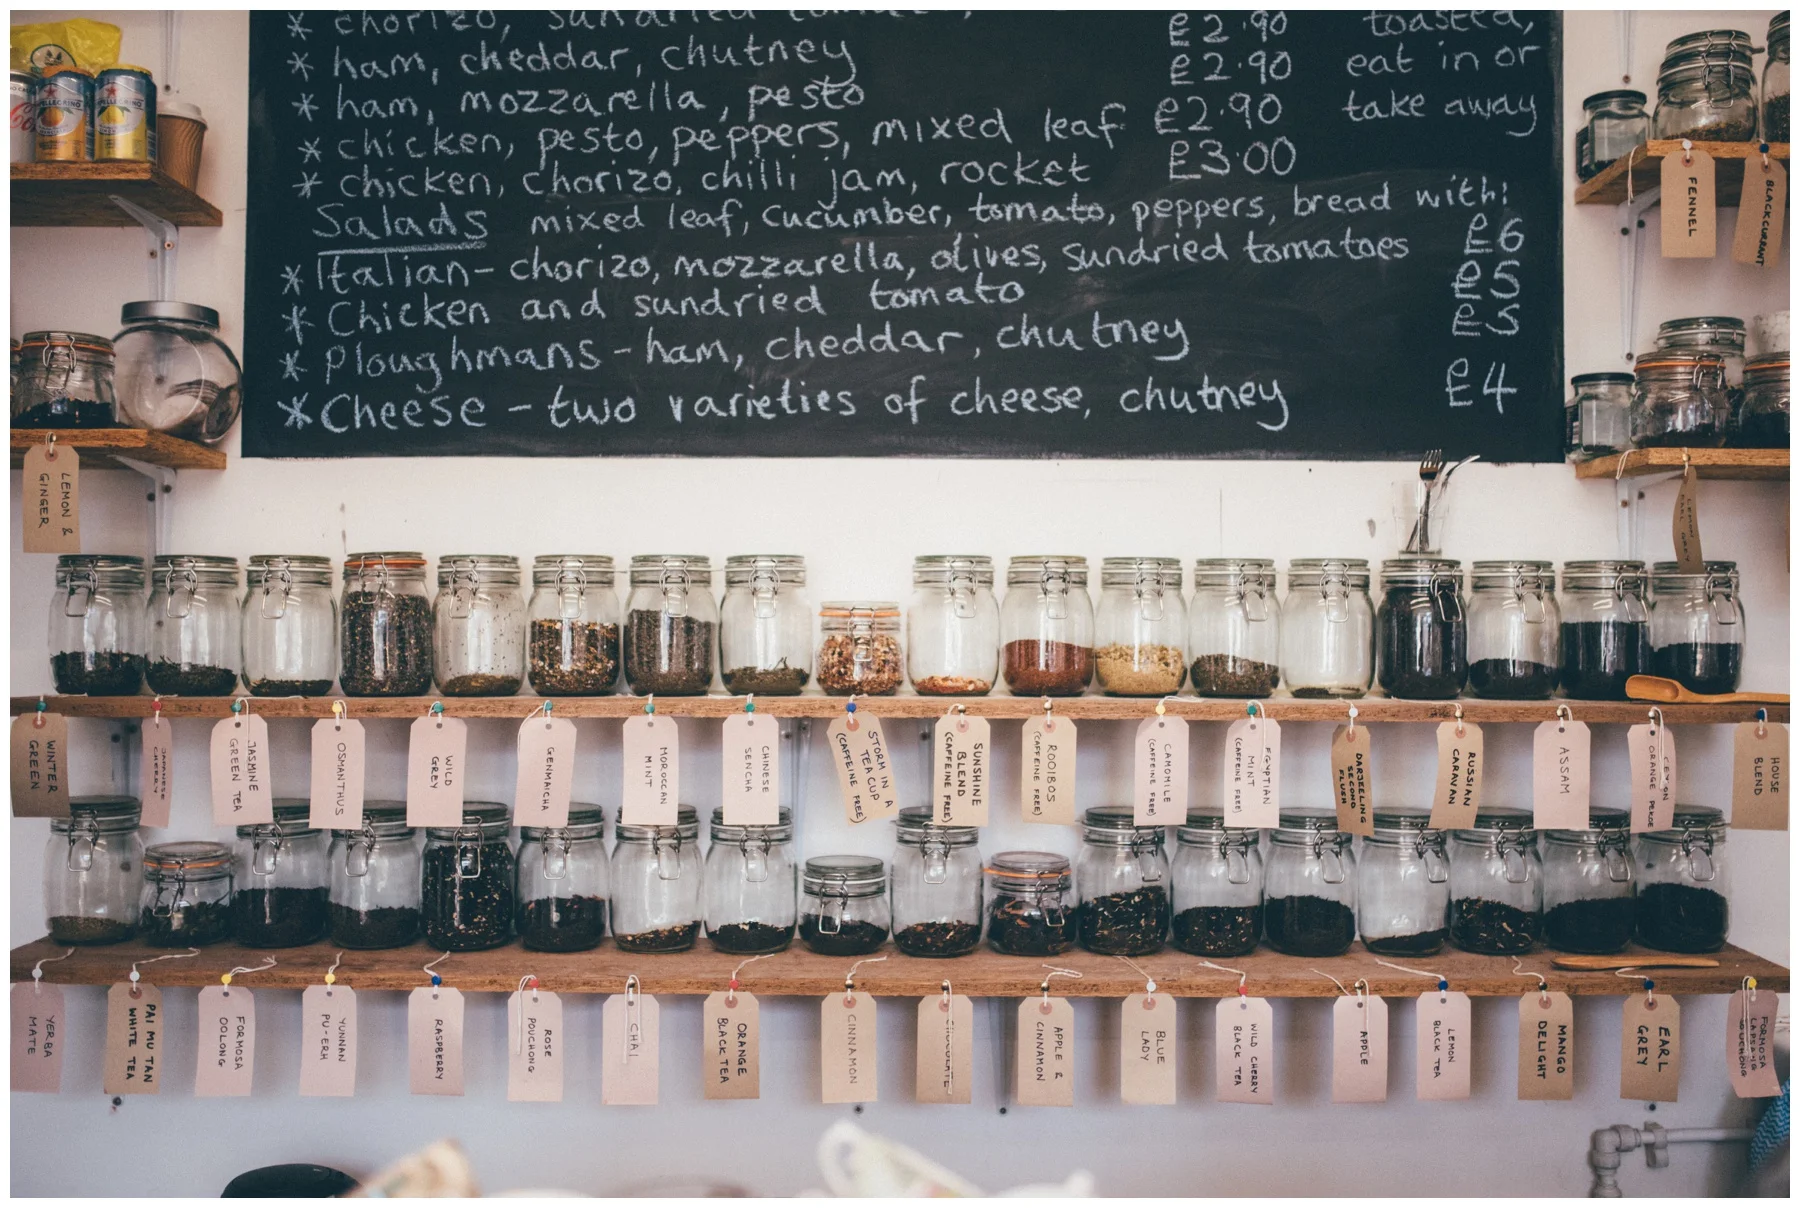 * chorizo, sundried tomato, £2.90 toasted,
* ham, cheddar, chutney £2.90 eat in or
* ham, mozzarella, pesto £2.90 take away
* chicken, pesto, peppers, mixed leaf £3.00
* chicken, chorizo, chilli jam, rocket
Salads mixed leaf, cucumber, tomato, peppers, bread with:
* Italian - chorizo, mozzarella, olives, sundried tomatoes £6
* Chicken and sundried tomato £5
* Ploughmans - ham, cheddar, chutney £5
* Cheese - two varieties of cheese, chutney £4
PELLEGRINO
FENNEL
BLACKCURRANT
LEMON &
GINGER
LEMON
EARL GREY
WINTER
GREEN
JAPANESE
CHERRY
JASMINE
GREEN TEA
OSMANTHUS
WILD
GREY
GENMAICHA
MOROCCAN
MINT
CHINESE
SENCHA
STORM IN A
TEA CUP
(CAFFEINE FREE)
SUNSHINE
BLEND
(CAFFEINE FREE)
ROOIBOS
(CAFFEINE FREE)
CAMOMILE
(CAFFEINE FREE)
EGYPTIAN
MINT
(CAFFEINE FREE)
DARJEELING
SECOND
FLUSH
RUSSIAN
CARAVAN
ASSAM
CEYLON
ORANGE PEKOE
HOUSE
BLEND
YERBA
MATE
PAI MU TAN
WHITE TEA
FORMOSA
OOLONG
YUNNAN
PU-ERH
RASPBERRY
ROSE
POUCHONG
CHAI
ORANGE
BLACK TEA
CINNAMON
CHOCOLATE
APPLE &
CINNAMON
BLUE
LADY
WILD CHERRY
BLACK TEA
APPLE
LEMON
BLACK TEA
MANGO
DELIGHT
EARL
GREY
FORMOSA
LAPSANG
SOUCHONG